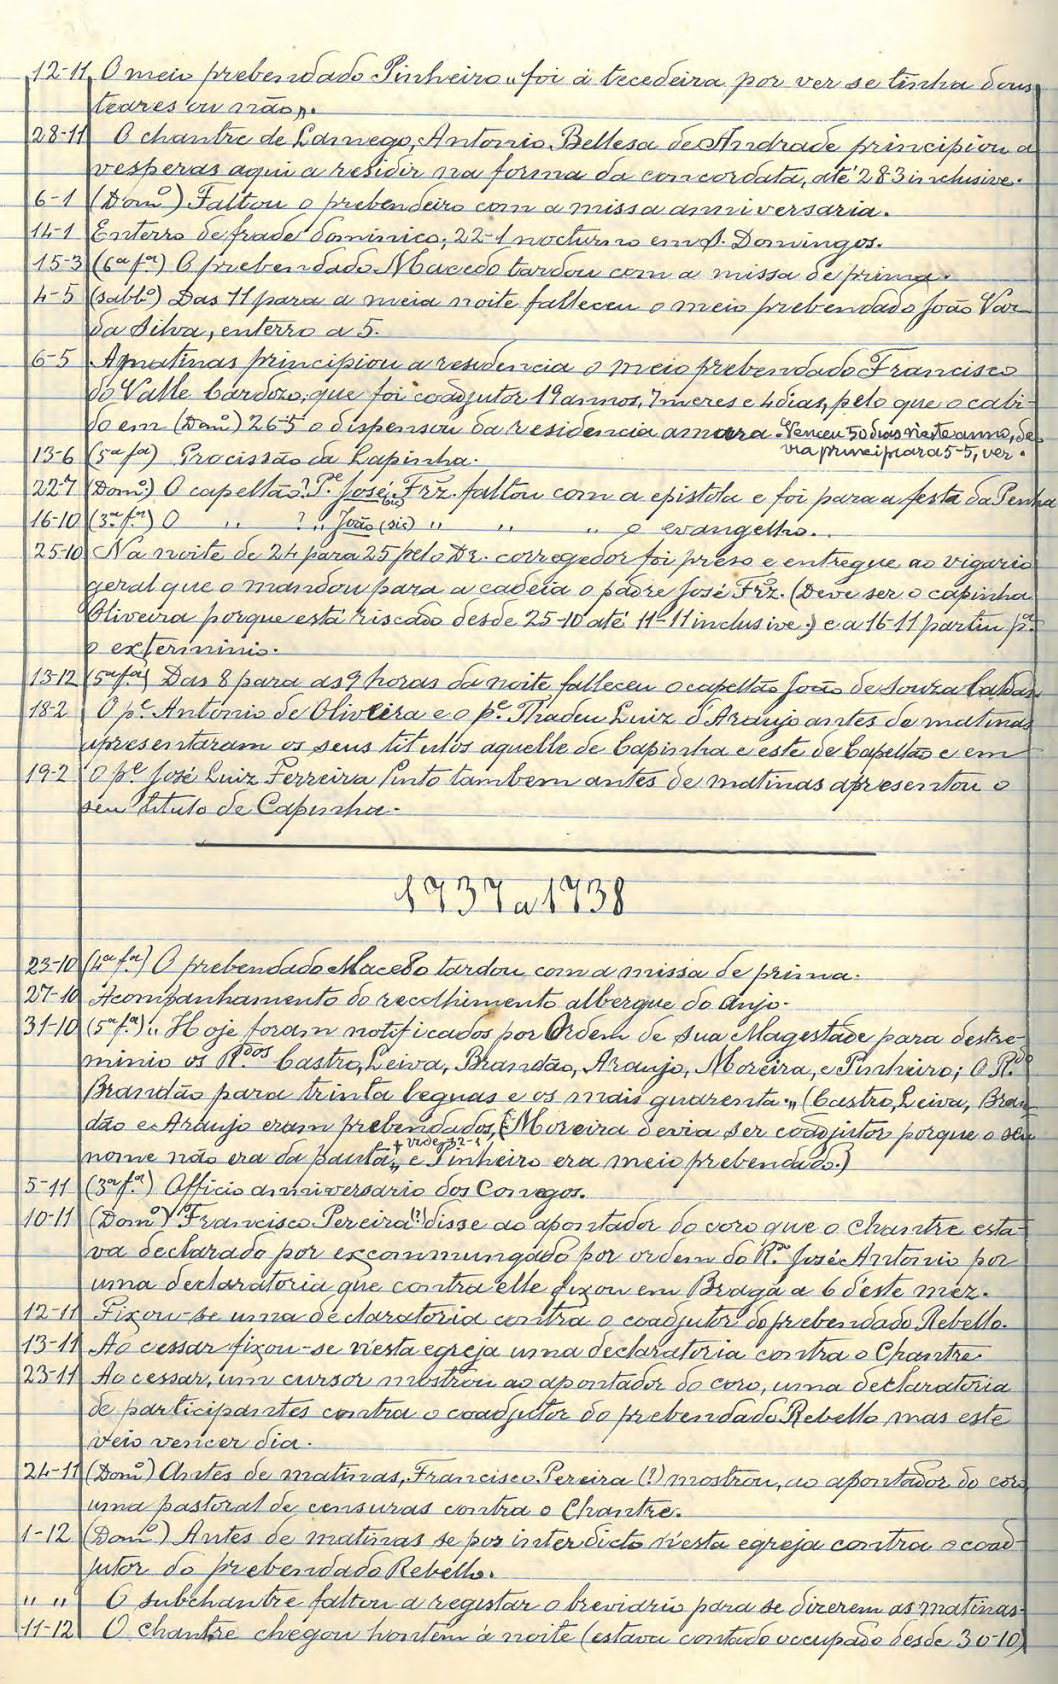 12-11 O meio prebendado Pinheiro "foi á tecedeira por ver se tinha dous
teares ou não".
28-11 O chantre de Lamego, Antonio Bellesa de Andrade principiou a
vesperas aqui a residir na forma da concordata, até 28-3 inclusive.
6-1 (Domº) Faltou o prebendeiro com a missa anniversaria.
14-1 Enterro de frade dominico, 22-1 nocturno em S. Domingos.
15-3 (6ª fª) O prebendado Macedo tardou com a missa de prima.
4-5 (sabbº) Das 11 para a meia noite falleceu o meio prebendado João Var
da Silva, enterro a 5.
6-5 A matinas principiou a residencia o meio prebendado Francisco
do Valle Cardozo, que foi coadjutor 19 annos, 7 mezes e 4 dias, pelo que o cabi-
do em (Domº) 26-5 o dispensou da residencia amara. Venceu 50 dias n'este anno, de-
via principiar a 5-5, ver.
13-6 (5ª fª) Procissão da Lapinha.
22-7 (Domº) O capellão ? Pe José (sic) Frz. faltou com a epistola e foi para a festa da Penha
16-10 (3ª fª) O " ? " João (sic) " " " o evangelho.
25-10 Na noite de 24 para 25 pelo Dr. corregedor foi preso e entregue ao vigario
geral que o mandou para a cadeia o padre José Frz. (Deve ser o capinha
Oliveira porque está riscado desde 25-10 até 11-11 inclusive.) e a 16-11 partiu pª
o exterminio.
13-12 (5ª fª) Das 8 para as 9 horas da noite, falleceu o capellão João de Souza Caldas
18-2 O pe Antonio de Oliveira e o pe Thadeu Luiz d'Araujo antes de matinas
apresentaram os seus titulos aquelle de Capinha e este de Capellão e em
19-2 o pe José Luiz Ferreira Pinto tambem antes de matinas apresentou o
seu titulo de Capinha.
1737 a 1738
23-10 (4ª fª) O prebendado Macedo tardou com a missa de prima.
27-10 Acompanhamento do recolhimento albergue do Anjo.
31-10 (5ª fª) "Hoje foram notificados por Ordem de Sua Magestade para destre-
minio os R.dos Castro, Leiva, Brandão, Araujo, Moreira, e Pinheiro; O R.do
Brandão para trinta leguas e os mais quarenta." (Castro, Leiva, Bran-
dão e Araujo eram prebendados, (Moreira devia ser coadjutor porque o seu
nome não era da pauta, + vide 32-1 e Pinheiro era meio prebendado.)
5-11 (3ª fª) Officio anniversario dos Conegos.
10-11 (Domº) Francisco Pereira (?) disse ao apontador do coro que o Chantre esta-
va declarado por excommungado por ordem do R.do José Antonio por
uma declaratoria que contra elle fixou em Braga a 6 d'este mez.
12-11 Fixou-se uma declaratoria contra o coadjutor do prebendado Rebello.
13-11 Ao cessar fixou-se n'esta egreja uma declaratoria contra o Chantre.
23-11 Ao cessar, um cursor mostrou ao apontador do coro, uma declaratoria
de participantes contra o coadjutor do prebendado Rebello mas este
veio vencer dia.
24-11 (Domº) Antes de matinas, Francisco Pereira (?) mostrou, ao apontador do coro,
uma pastoral de censuras contra o Chantre.
1-12 (Domº) Antes de matinas se poz interdicto n'esta egreja contra o coad-
jutor do prebendado Rebello.
" " O subchantre faltou a registar o breviario para se dizerem as matinas.
11-12 O chantre chegou hontem á noite (estava contado occupado desde 30-10)